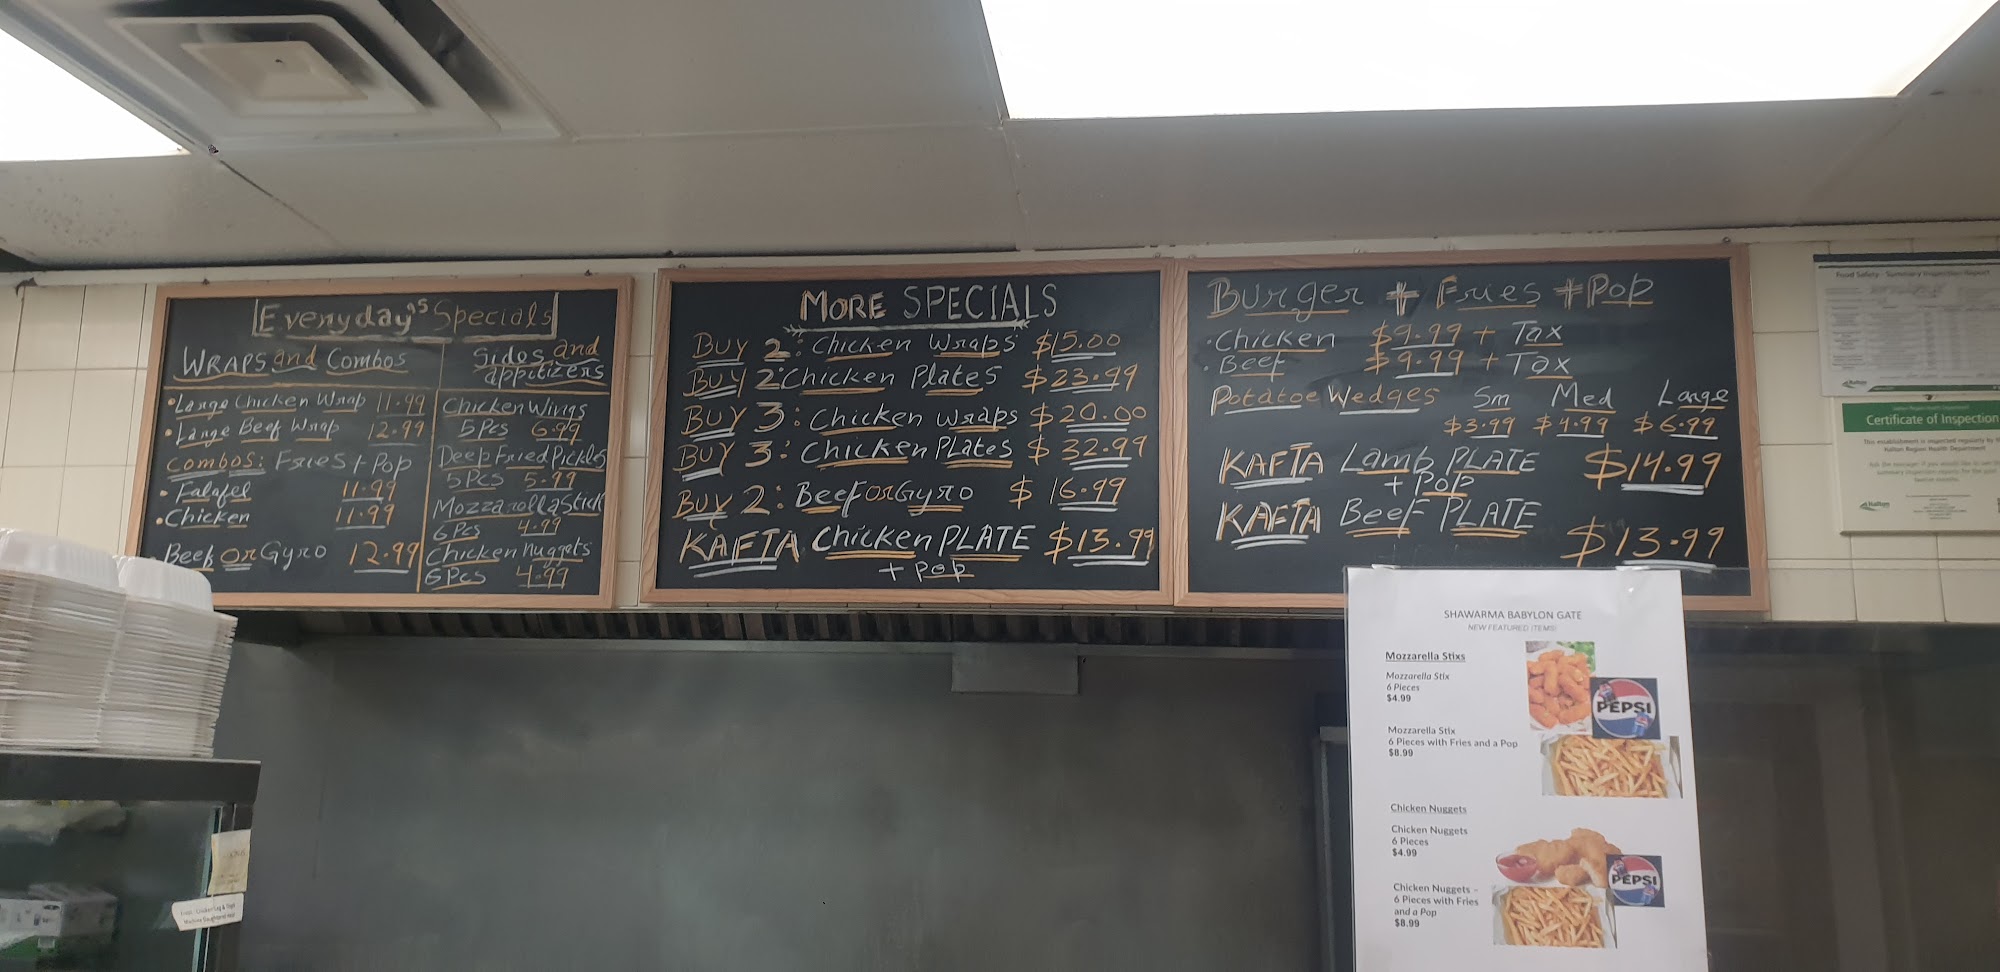 Everyday's Specials
WRAPS and Combos
• Large Chicken Wrap 11.99
• Large Beef Wrap 12.99
Combos: Fries + Pop
• Falafel 11.99
• Chicken 11.99
• Beef or Gyro 12.99
Sides and
appitizers
Chicken Wings
5 Pcs 6.99
Deep Fried Pickles
5 Pcs 5.99
Mozzarolla Stick
6 Pcs 4.99
Chicken nuggets
6 Pcs 4.99
MORE SPECIALS
BUY 2: Chicken Wraps $15.00
BUY 2: Chicken Plates $23.99
BUY 3: Chicken wraps $20.00
BUY 3: Chicken PLates $32.99
BUY 2: Beef or Gyro $16.99
KAFTA Chicken PLATE $13.99
+ Pop
Burger + Fries + Pop
• Chicken $9.99 + Tax
• Beef $9.99 + Tax
Potatoe Wedges Sm Med Large
$3.99 $4.99 $6.99
KAFTA Lamb PLATE $14.99
+ POP
KAFTA Beef PLATE $13.99
SHAWARMA BABYLON GATE
NEW FEATURED ITEMS!
Mozzarella Stixs
Mozzarella Stix
6 Pieces
$4.99
PEPSI
Mozzarella Stix
6 Pieces with Fries and a Pop
$8.99
Chicken Nuggets
Chicken Nuggets
6 Pieces
$4.99
PEPSI
Chicken Nuggets –
6 Pieces with Fries
and a Pop
$8.99
Food Safety - Summary Inspection Report
Halton
Certificate of Inspection
Halton